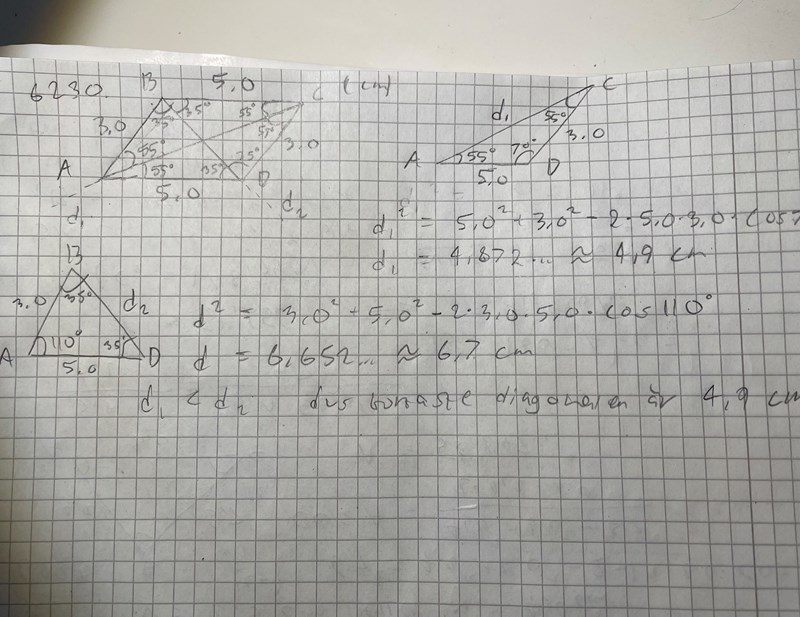 6230.
B 5,0 C (cm)
3,0 35° 35° 55° 55° 3,0
A 55° 55° 35° 35° D
5,0
d₁ d₂
d₁ C
55° 3,0
A 55° 70° D
5,0
d₁² = 5,0² + 3,0² - 2·5,0·3,0·cos7
d₁ = 4,872... ≈ 4,9 cm
B
3,0 35° d₂
A 110° 35° D
5,0
d² = 3,0² + 5,0² - 2·3,0·5,0·cos110°
d = 6,652... ≈ 6,7 cm
d₁ < d₂ dvs kortaste diagonalen är 4,9 cm